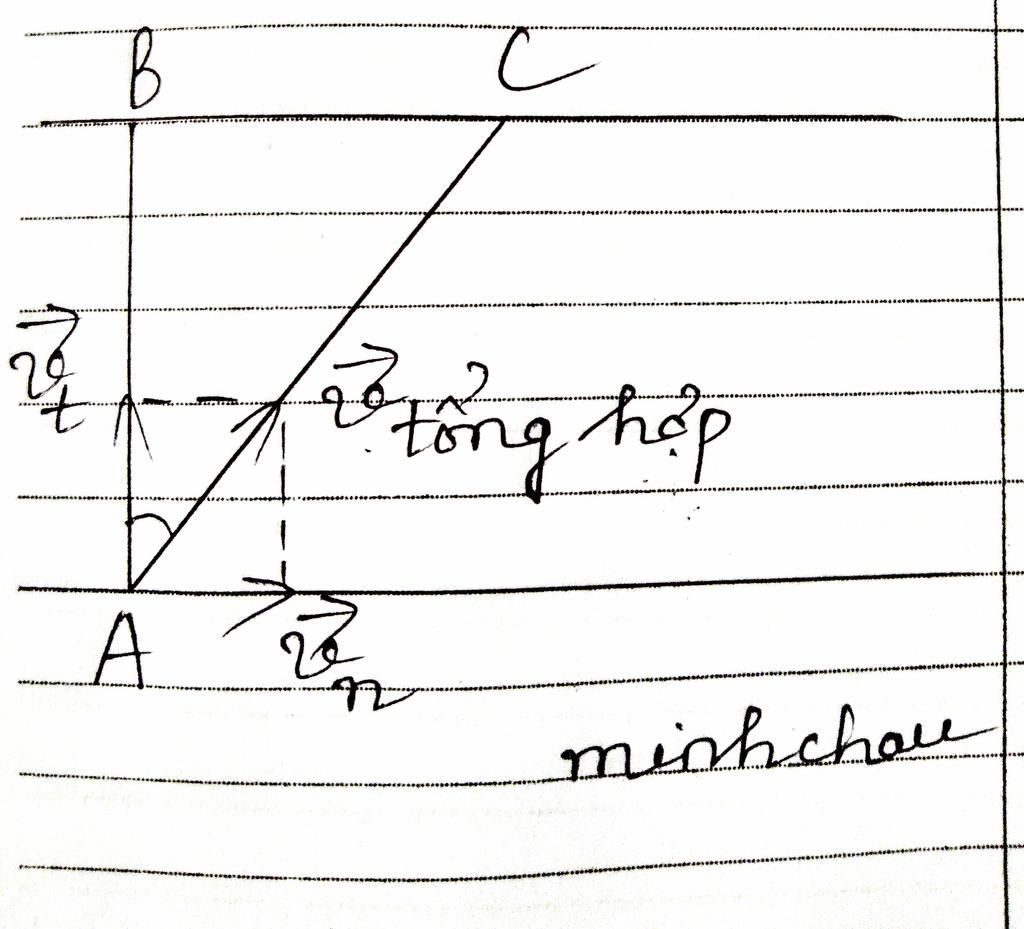 B C
v⃗t
v⃗ tổng hợp
A
v⃗n
minhchau